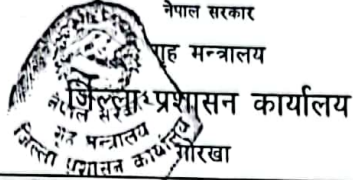 नेपाल सरकार
गृह मन्त्रालय
जिल्ला प्रशासन कार्यालय
गोरखा
नेपाल सरकार
गृह मन्त्रालय
जिल्ला प्रशासन कार्यालय